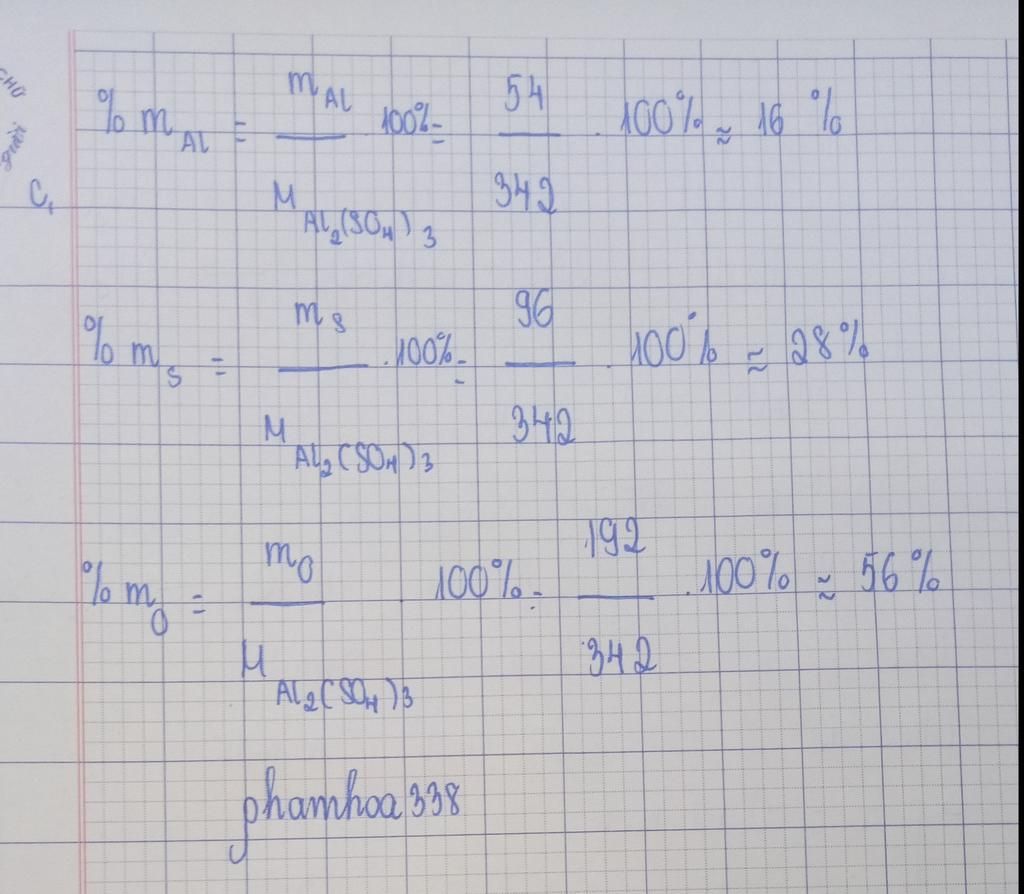 % m_Al = m_Al / M_Al₂(SO₄)₃ 100% = 54 / 342 . 100% ≈ 16 %
C,
% m_S = m_S / M_Al₂(SO₄)₃ . 100% = 96 / 342 . 100% ≈ 28%
% m_O = m_O / M_Al₂(SO₄)₃ . 100% = 192 / 342 . 100% ≈ 56 %
phamhoa338